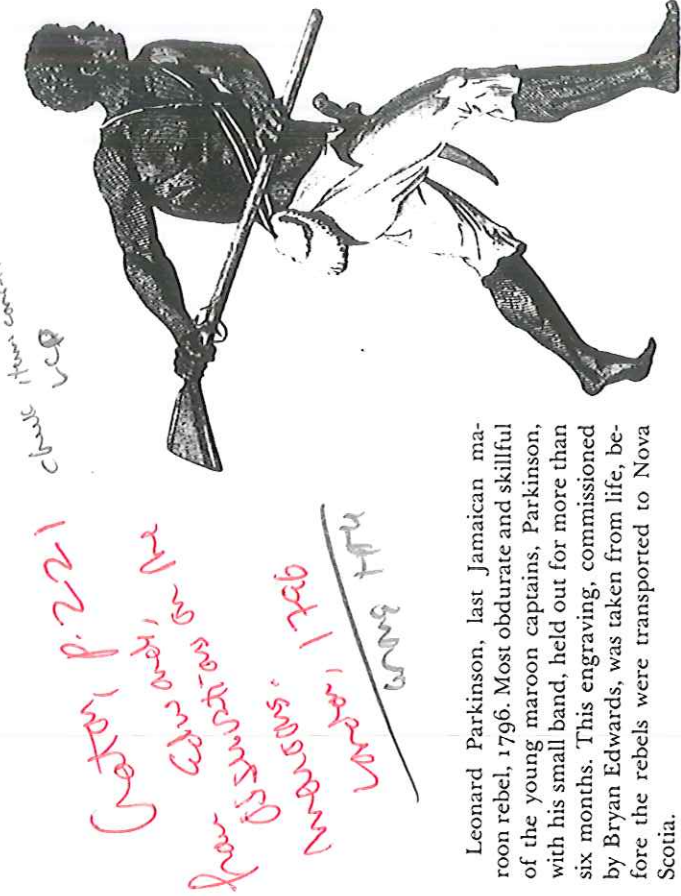 check items
UCP
Craton, p. 221
from Edwards,
Observations on the
maroons.
London, 1796
wrong
Leonard Parkinson, last Jamaican ma-
roon rebel, 1796. Most obdurate and skillful
of the young maroon captains, Parkinson,
with his small band, held out for more than
six months. This engraving, commissioned
by Bryan Edwards, was taken from life, be-
fore the rebels were transported to Nova
Scotia.